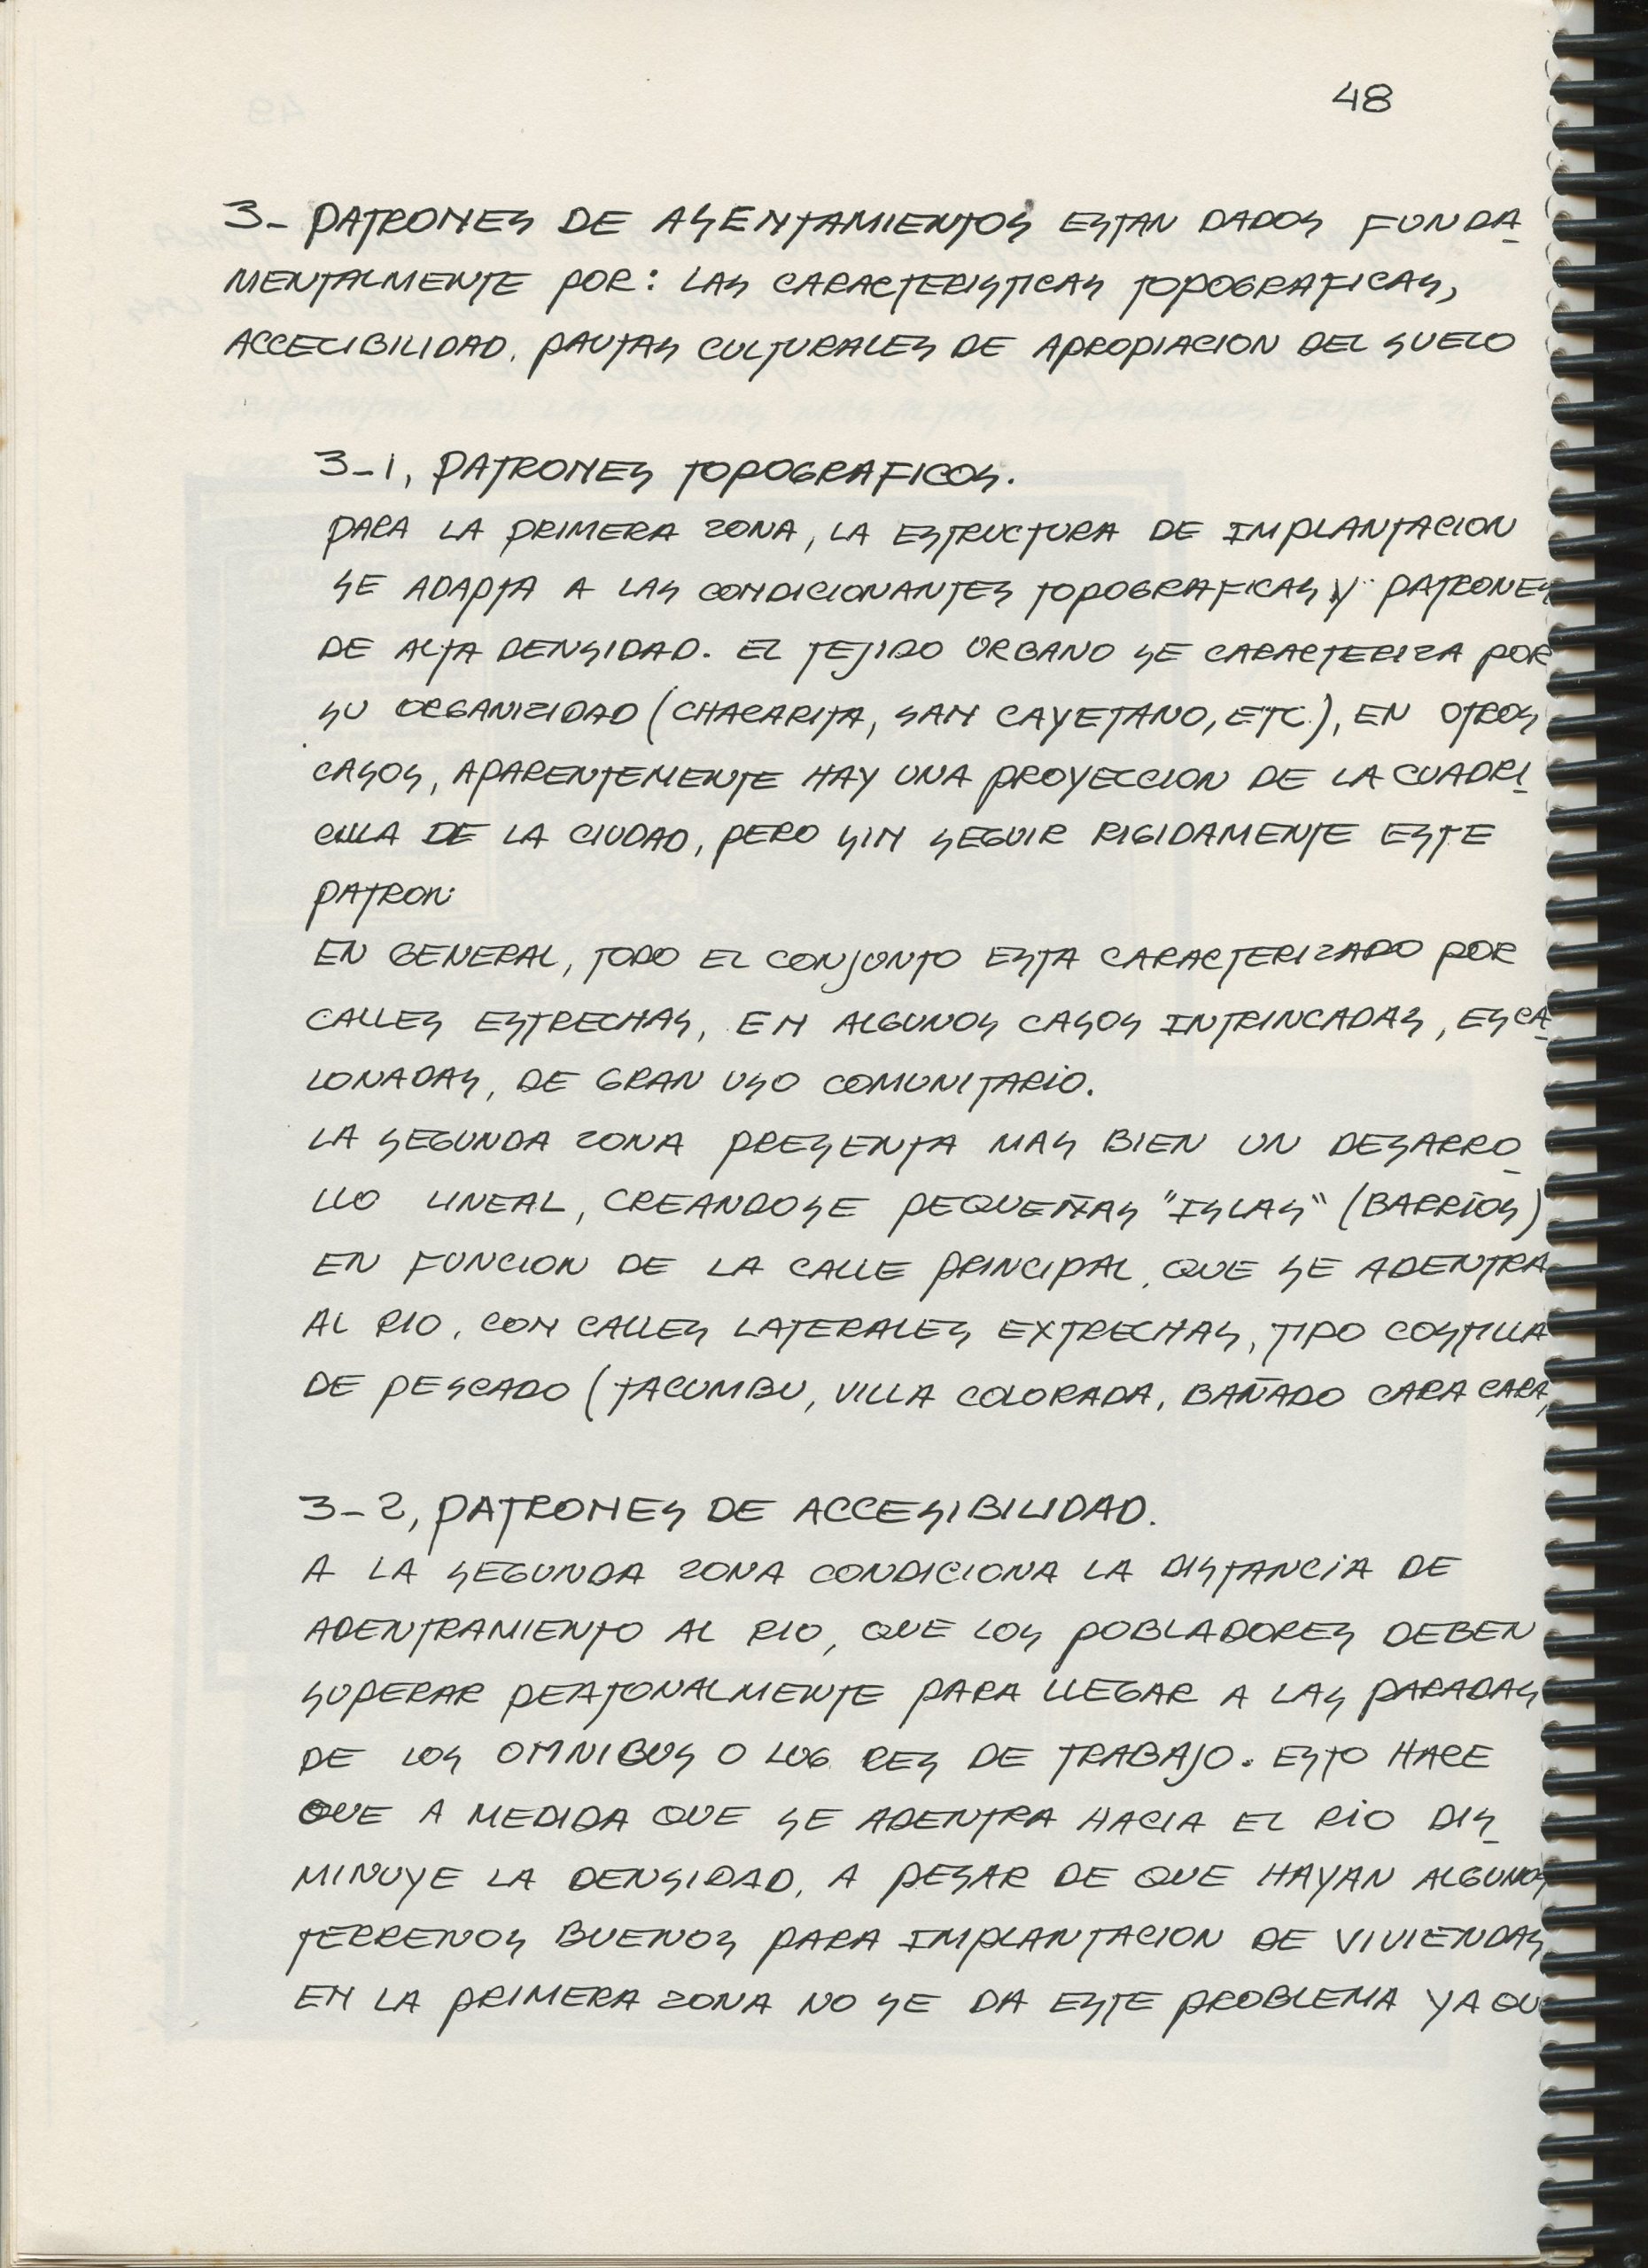 48
3- PATRONES DE ASENTAMIENTOS ESTAN DADOS FUNDA
MENTALMENTE POR: LAS CARACTERISTICAS TOPOGRAFICAS,
ACCECIBILIDAD, PAUTAS CULTURALES DE APROPIACION DEL SUELO
3-1, PATRONES TOPOGRAFICOS.
PARA LA PRIMERA ZONA, LA ESTRUCTURA DE IMPLANTACION
SE ADAPTA A LAS CONDICIONANTES TOPOGRAFICAS Y PATRONES
DE ALTA DENSIDAD. EL TEJIDO URBANO SE CARACTERIZA POR
SU ORGANIZIDAD (CHACARITA, SAN CAYETANO, ETC.), EN OTROS
CASOS, APARENTEMENTE HAY UNA PROYECCION DE LA CUADRI
CULA DE LA CIUDAD, PERO SIN SEGUIR RIGIDAMENTE ESTE
PATRON.
EN GENERAL, TODO EL CONJUNTO ESTA CARACTERIZADO POR
CALLES ESTRECHAS, EN ALGUNOS CASOS INTRINCADAS, ESCA
LONADAS, DE GRAN USO COMUNITARIO.
LA SEGUNDA ZONA PRESENTA MAS BIEN UN DESARRO
LLO LINEAL, CREANDOSE PEQUEÑAS "ISLAS" (BARRIOS)
EN FUNCION DE LA CALLE PRINCIPAL, QUE SE ADENTRA
AL RIO, CON CALLES LATERALES EXTRECHAS, TIPO COSTILLA
DE PESCADO (TACUMBU, VILLA COLORADA, BAÑADO CARA CARA,
3-2, PATRONES DE ACCESIBILIDAD.
A LA SEGUNDA ZONA CONDICIONA LA DISTANCIA DE
ADENTRAMIENTO AL RIO, QUE LOS POBLADORES DEBEN
SUPERAR PEATONALMENTE PARA LLEGAR A LAS PARADAS
DE LOS OMNIBUS O LUG RES DE TRABAJO. ESTO HACE
QUE A MEDIDA QUE SE ADENTRA HACIA EL RIO DIS
MINUYE LA DENSIDAD, A PESAR DE QUE HAYAN ALGUNOS
TERRENOS BUENOS PARA IMPLANTACION DE VIVIENDAS
EN LA PRIMERA ZONA NO SE DA ESTE PROBLEMA YA QU